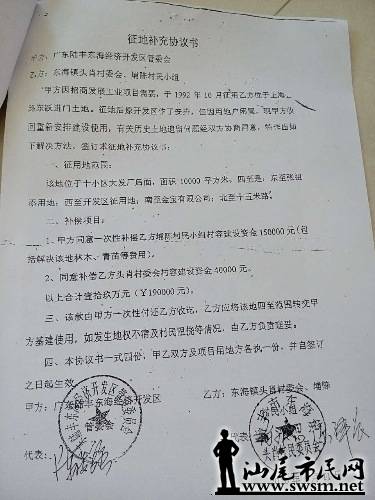 征地补充协议书
甲方：广东陆丰东海经济开发区管委会
乙方：东海镇头肖村委会、埔陈村民小组
甲方因招商发展工业项目需要，于1992年10月征用乙方位于上海
路东跃进门土地。征地后原开发区作了安排，但因用地户
回重新安排建设使用，有关历史上地遗留问题经双方协商同意，
下解决方法，签订本征地补充协议书：
一、征用地范围：
该地位于十小区大发厂后面，面积10000平方米，四至是：东至张祖
添用地；西至开发区征用地；南至金宝有限公司；北至十五米路。
二、补偿项目：
1、甲方同意一次性补偿乙方埔陈村民小组村容建设资金150000元（包
括解决该地林木、青苗等费用）。
2、同意补偿乙方头肖村委会村容建设资金40000元。
以上合计壹拾玖万元（￥190000元）。
三、该款由甲方一次性付还乙方收讫，乙方应将该地四至范围转交甲
方基建使用，如发生地权不清及村民阻挠等情况，由乙方负责处理。
四、本协议书一式四份，甲乙双方及项目用地方各执一份，并自签订
之日起生效
甲方：广东陆丰东海经济开发区
管委会
乙方：东海镇头肖村委会、埔陈
村民小组
代表：
代表：
汕尾市民网
www.swsm.net